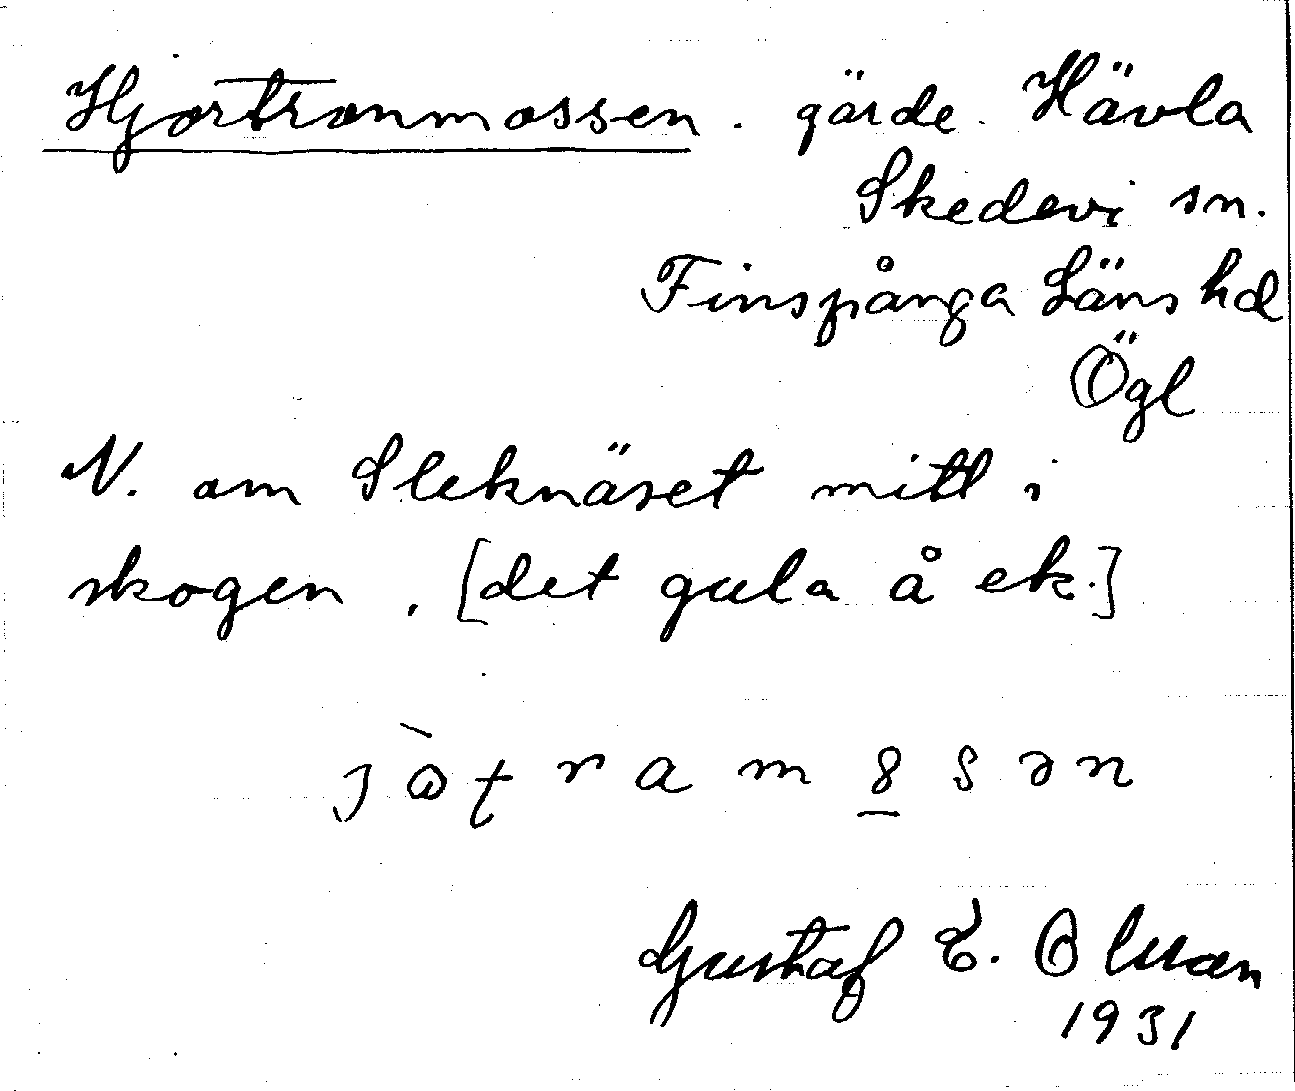 Hjortronmossen. gärde. Hävla
Skedevi sn.
Finspånga Läns hd
Ögl
N. om Sleknäset mitt i
skogen. [det gula å ek.]
Gustaf E. Olsson
1931